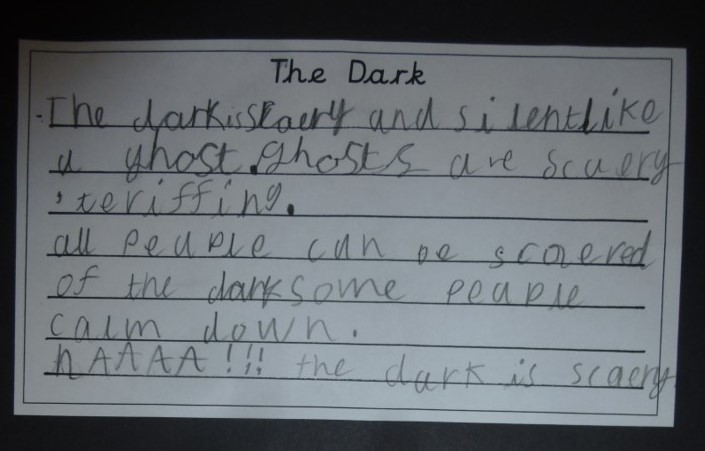 The Dark
The dark is scaery and silent like
a ghost. ghosts are scaery
, teriffing.
all peaple can be scaered
of the dark some peaple
calm down.
hAAAA!!! the dark is scaery